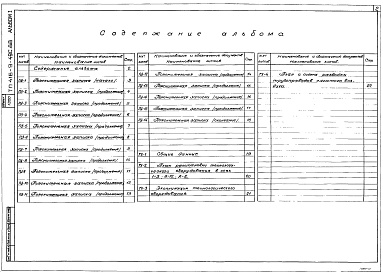 Содержание альбома
ТП 416-9-45С.88 АЛЬБОМ 1
№№ лист
Наименование и обозначение документов
Наименование листа
Стр.
Содержание альбома 2
ПЗ-1 Пояснительная записка (начало) 3
ПЗ-2 Пояснительная записка (продолжение) 4
ПЗ-3 Пояснительная записка (продолжение) 5
ПЗ-4 Пояснительная записка (продолжение) 6
ПЗ-5 Пояснительная записка (продолжение) 7
ПЗ-6 Пояснительная записка (продолжение) 8
ПЗ-7 Пояснительная записка (продолжение) 9
ПЗ-8 Пояснительная записка (продолжение) 10
ПЗ-9 Пояснительная записка (продолжение) 11
ПЗ-10 Пояснительная записка (продолжение) 12
ПЗ-11 Пояснительная записка (продолжение) 13
№№ лист
Наименование и обозначение документов
Наименование листа
Стр.
Пояснительная записка (продолжение) 14
Пояснительная записка (продолжение) 15
Пояснительная записка (продолжение) 16
Пояснительная записка (продолжение) 17
Пояснительная записка (окончание) 18
ТХ-1 Общие данные 19
ТХ-2 План расстановки технологического оборудования в осях
20
ТХ-3 Экспликация технологического
оборудования 21
№№ лист
Наименование и обозначение документов
Наименование листа
Стр.
ТХ-4 План и схема разводки
трубопроводов сжатого воздуха. 22